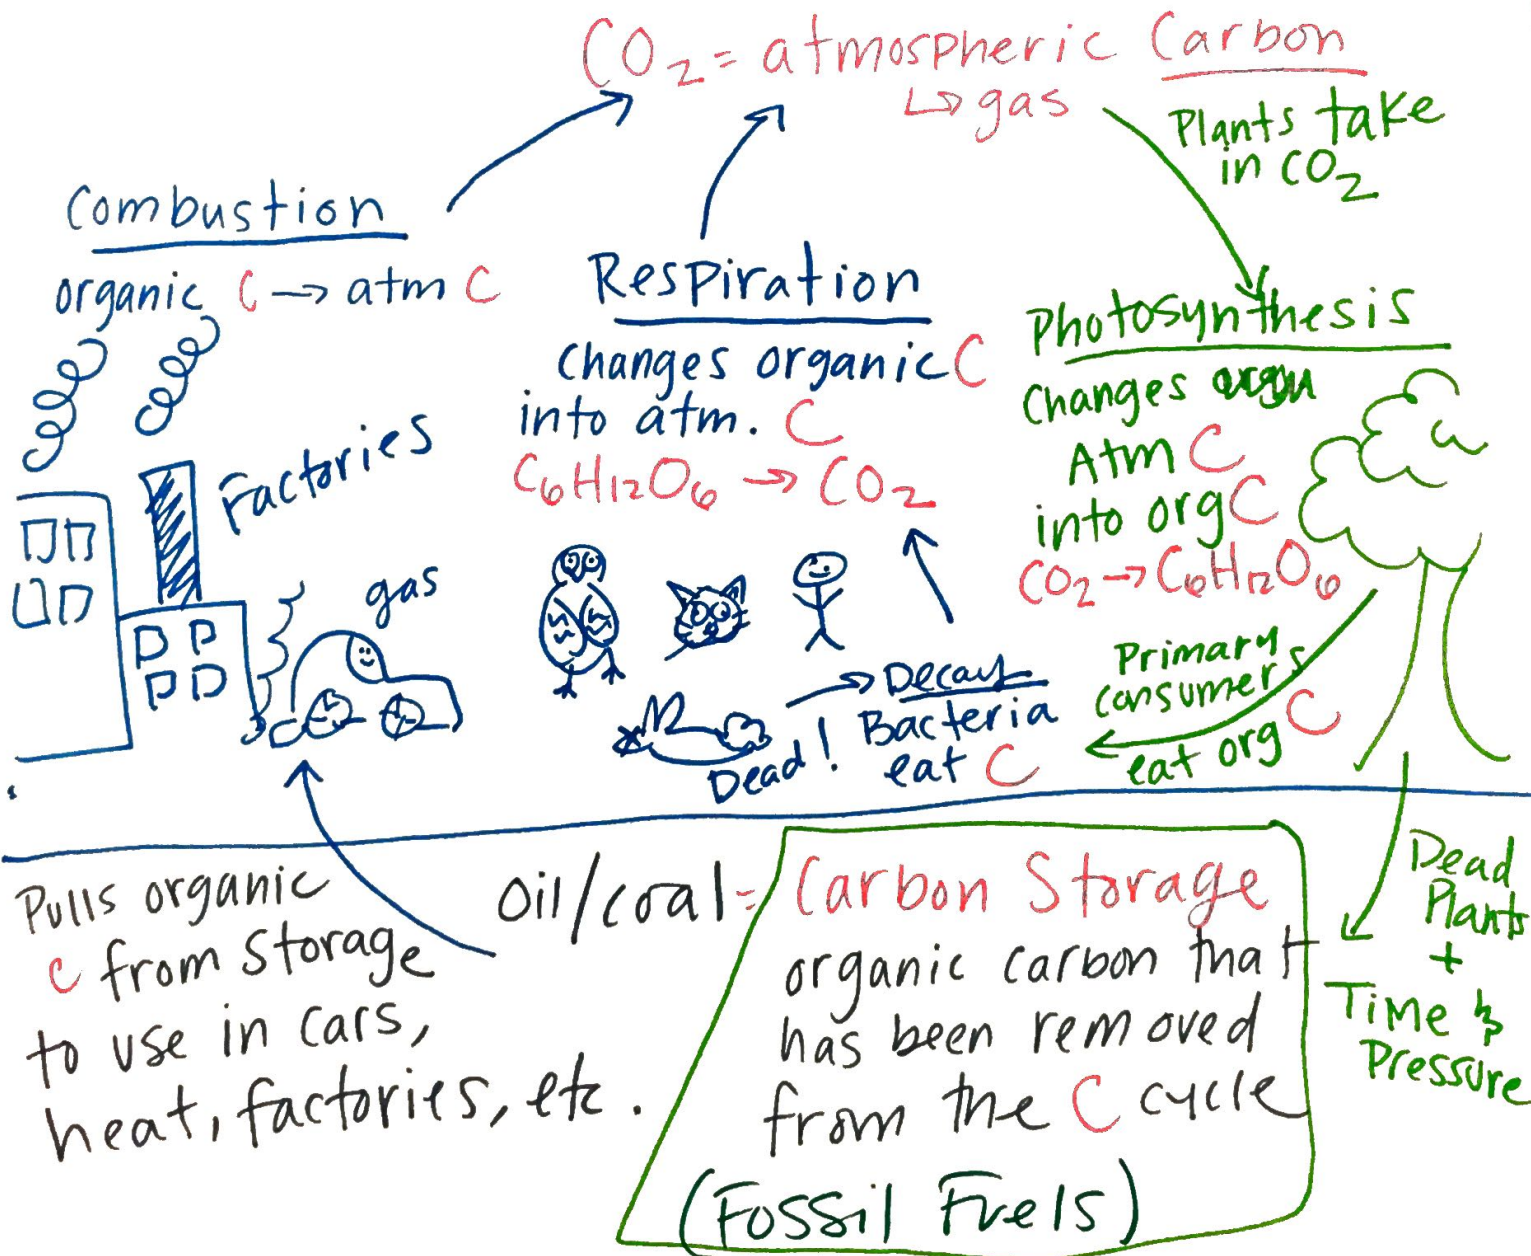 CO₂ = atmospheric Carbon
↳ gas
Plants take
in CO₂
Combustion
organic C → atm C
Respiration
Changes organic C
into atm. C
C₆H₁₂O₆ → CO₂
Photosynthesis
Changes
Atm C
into org C
CO₂ → C₆H₁₂O₆
Factories
gas
Primary
consumers
eat org C
Dead!
→ Decay
Bacteria
eat C
Pulls organic
C from Storage
to use in cars,
heat, factories, etc.
Oil/coal = Carbon Storage
organic carbon that
has been removed
from the C cycle
(Fossil Fuels)
Dead
Plants
+
Time &
Pressure